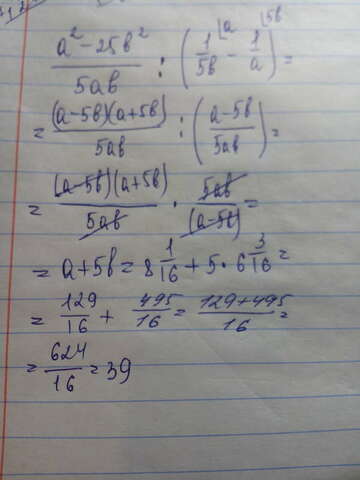 (a² - 25b²)/(5ab) : (1/(5b) ⌊a - 1/a ⌊5b) =
= ((a-5b)(a+5b))/(5ab) : ((a-5b)/(5ab)) =
= ((a-5b)(a+5b))/(5ab) · (5ab)/((a-5b)) =
= a+5b = 8 1/16 + 5 · 6 3/16 =
= 129/16 + 495/16 = (129+495)/16 =
= 624/16 = 39